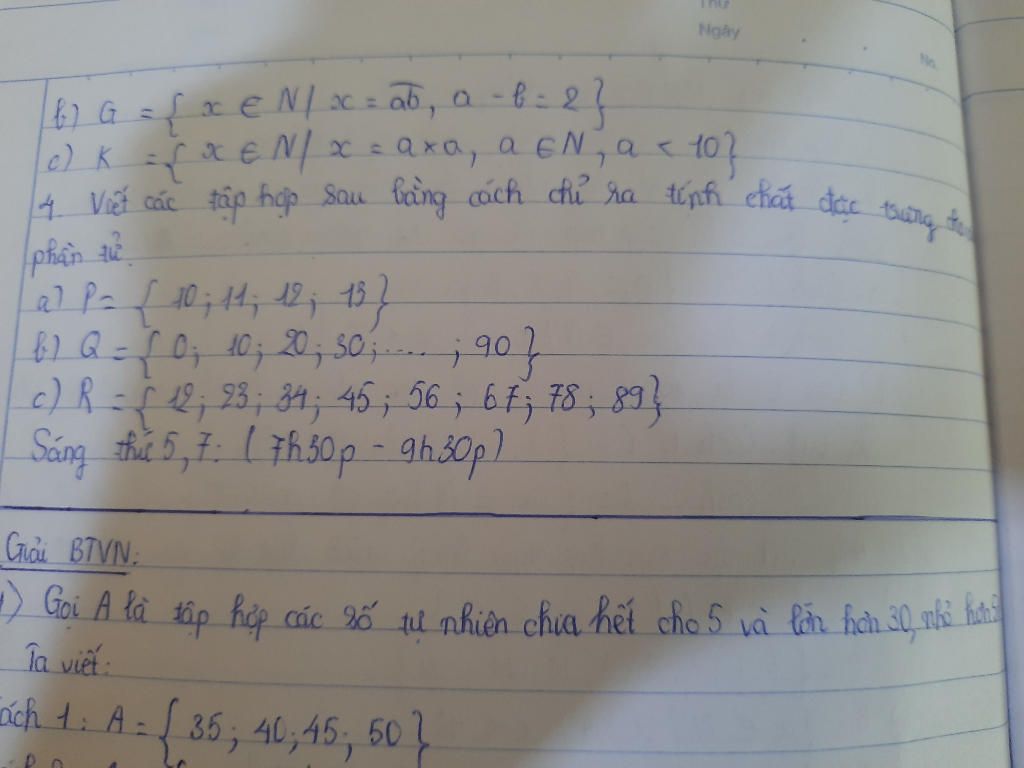 Thứ
Ngày
No.
b) G = { x ∈ N / x = a̅b̅, a - b = 2 }
c) K = { x ∈ N / x = a × a, a ∈ N, a < 10 }
4. Viết các tập hợp sau bằng cách chỉ ra tính chất đặc trưng cho
phần tử.
a) P = { 10 ; 11 ; 12 ; 13 }
b) Q = { 0 ; 10 ; 20 ; 30 ; .... ; 90 }
c) R = { 12 ; 23 ; 34 ; 45 ; 56 ; 67 ; 78 ; 89 }
Sáng thứ 5, 7 : ( 7h30p - 9h30p )
Giải BTVN :
1) Gọi A là tập hợp các số tự nhiên chia hết cho 5 và lớn hơn 30, nhỏ hơn
Ta viết :
Cách 1 : A = { 35 ; 40 ; 45 ; 50 }